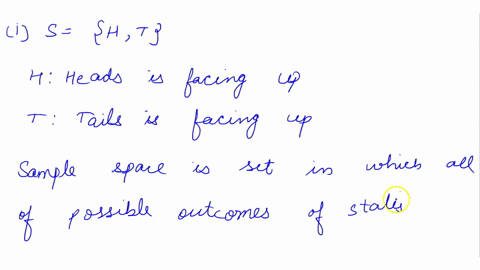 (i) S = {H, T}
H: Heads is facing up
T: Tails is facing up
Sample space is set in which all
of possible outcomes of statis